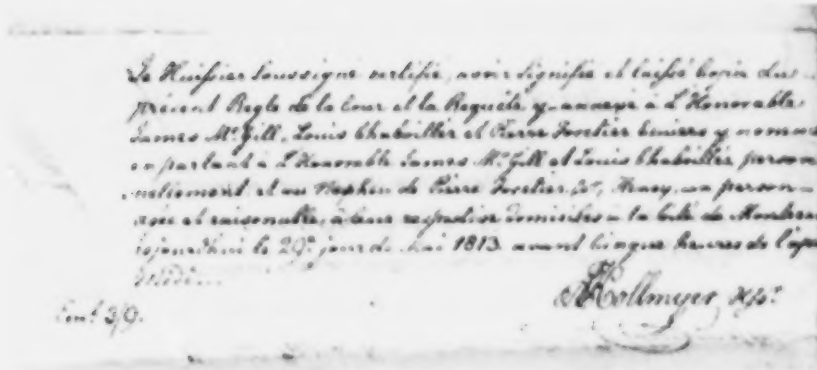 Le Huissier Soussigné certifie, avoir signifié et laissé Copie du
présent Regle de la Cour et la Requête y annexé à L'Honorable
James McGill, Louis Chaboillez et Pierre Foretier Ecuiers y nommés
en parlant à L'Honorable James McGill et Louis Chaboillez, person
nellement, et au Nephew de Pierre Foretier, Esqr,
age et raisonable, à leur respective domiciles en la Cité de Montreal
cejourdhui le 29e. jour de Mai 1813. avant Cinque heures de l'après
Midi.
A Kollmyer Hsr.
3/9.